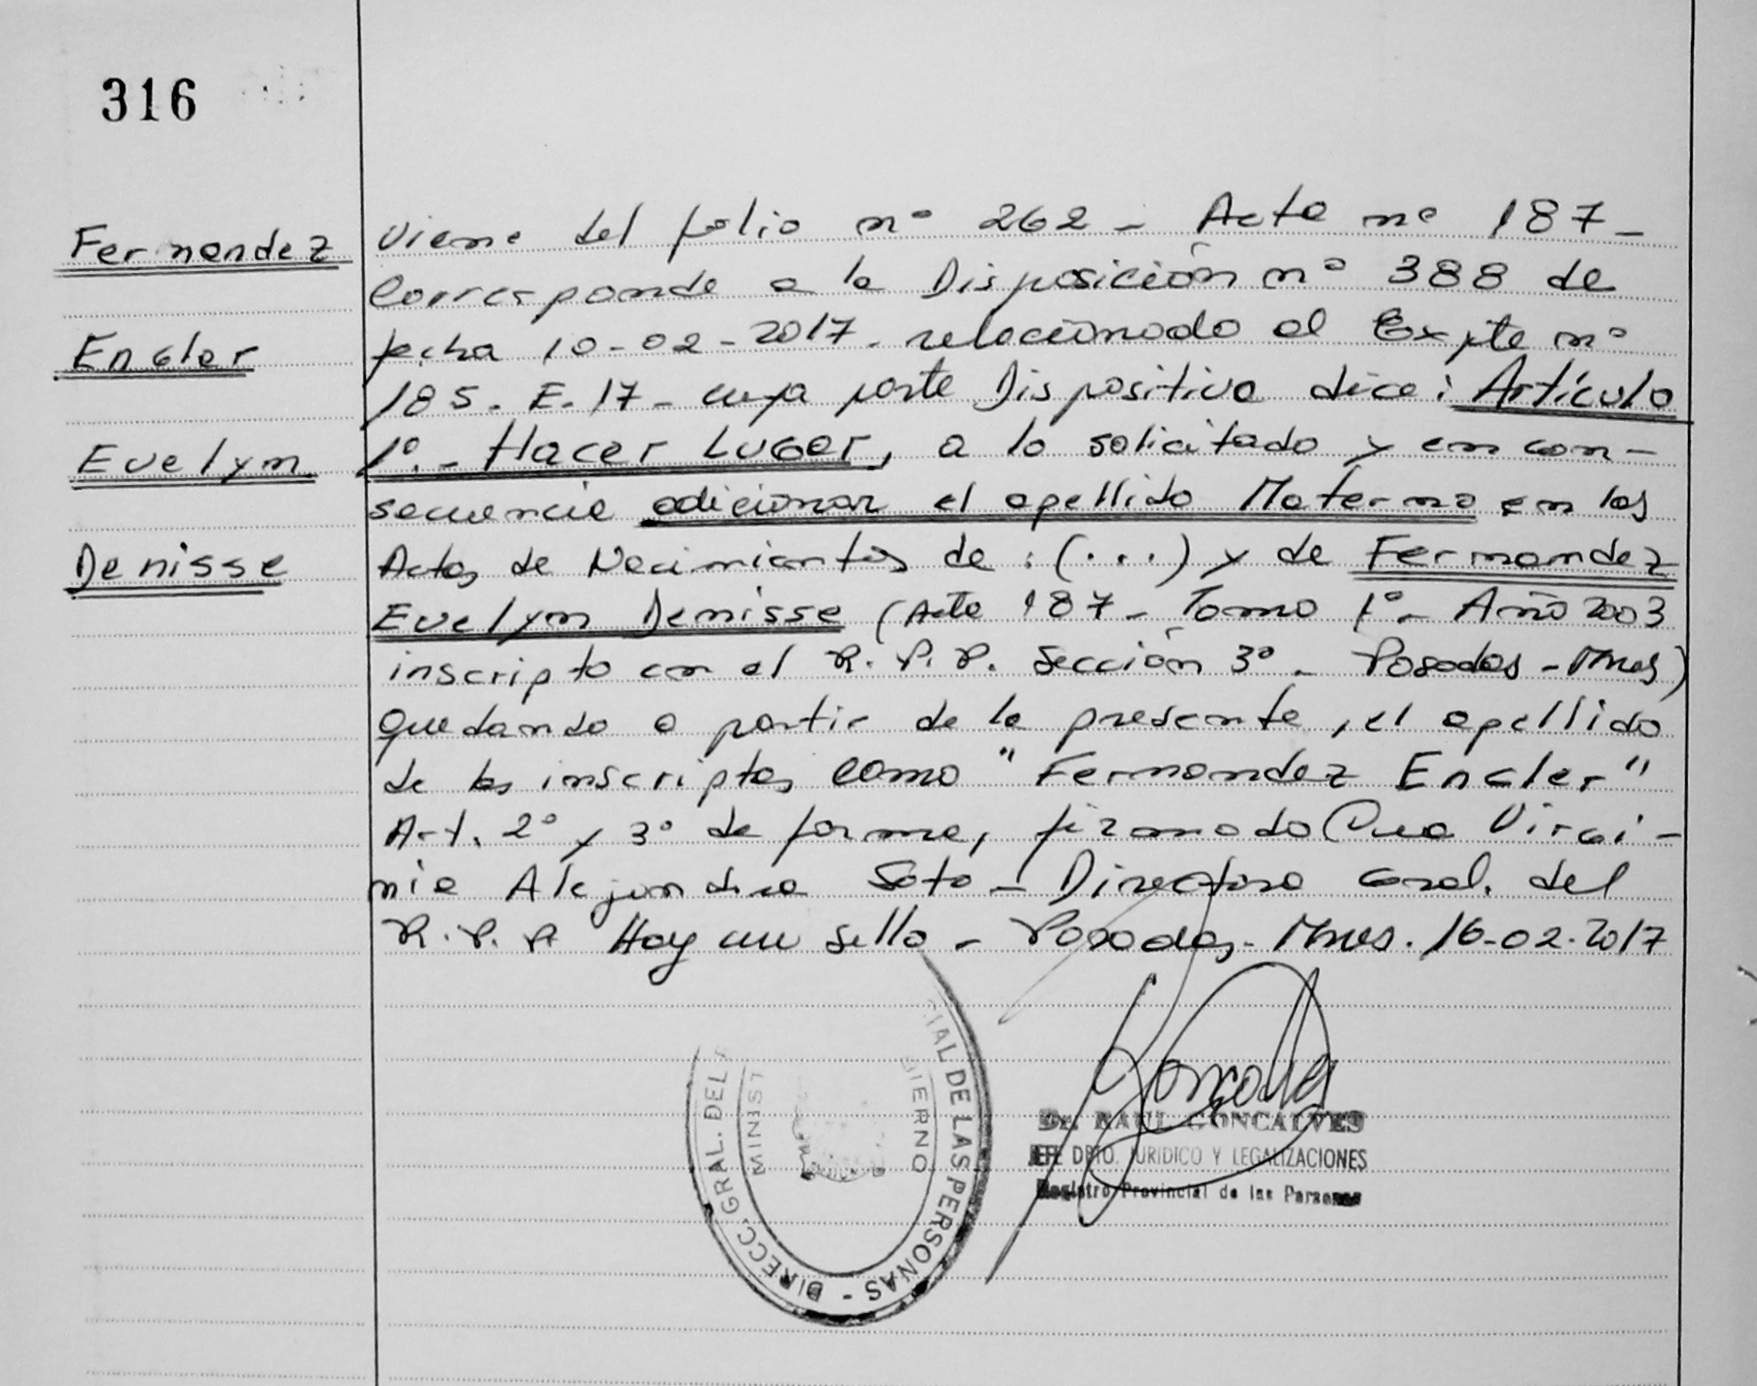 316
Fernandez
Engler
Evelyn
Denisse
Viene del folio nº 262 - Acta nº 187 -
Corresponde a la Disposición nº 388 de
fecha 10-02-2017 - relacionado al Expte nº
185. E-17 - cuya parte Dispositiva dice: Artículo
1º.- Hacer Lugar, a lo solicitado y en con-
secuencia adicionar el apellido Materno en las
Actas de Nacimientos de: (...) y de Fernandez
Evelyn Denisse (Acta 187 - Tomo 1º - Año 2003
inscripto en el R.P.P. Sección 3º - Posadas - Mnes)
quedando a partir de la presente, el apellido
de los inscriptos como "Fernandez Engler"
Art. 2º y 3º de forma, firmado Virgi-
nia Alejandra Soto - Directora Gral. del
R.P.P Hay un sello - Posadas - Mnes. 16-02-2017
DIRECC. GRAL. DEL CIAL DE LAS PERSONAS -
MINIST BIERNO
Dr. RAUL GONCALVES
JEFE DPTO. JURIDICO Y LEGALIZACIONES
Registro Provincial de las Personas